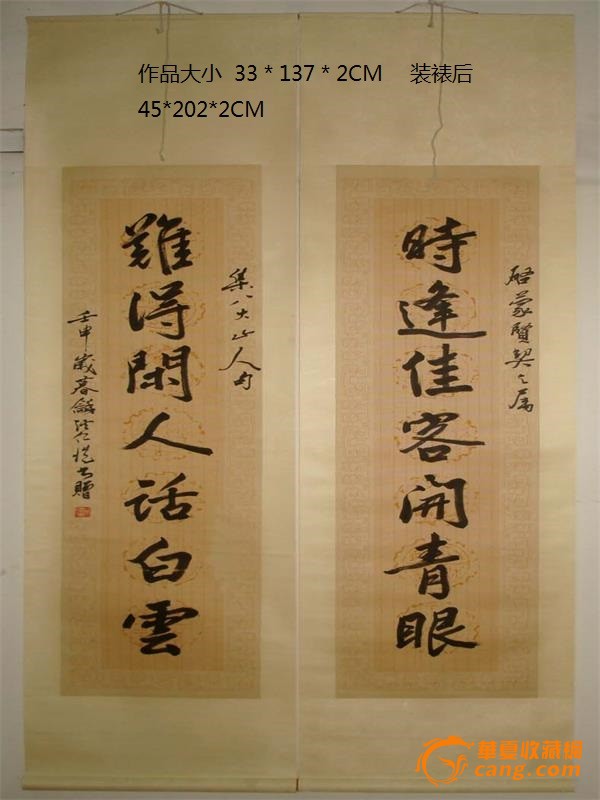 作品大小 33＊137＊2CM 装裱后
45*202*2CM
啟蒙賢契之屬
時逢佳客開青眼
集八大山人句
難得閑人話白雲
壬申歲暮
書贈
華夏收藏網
cang.com